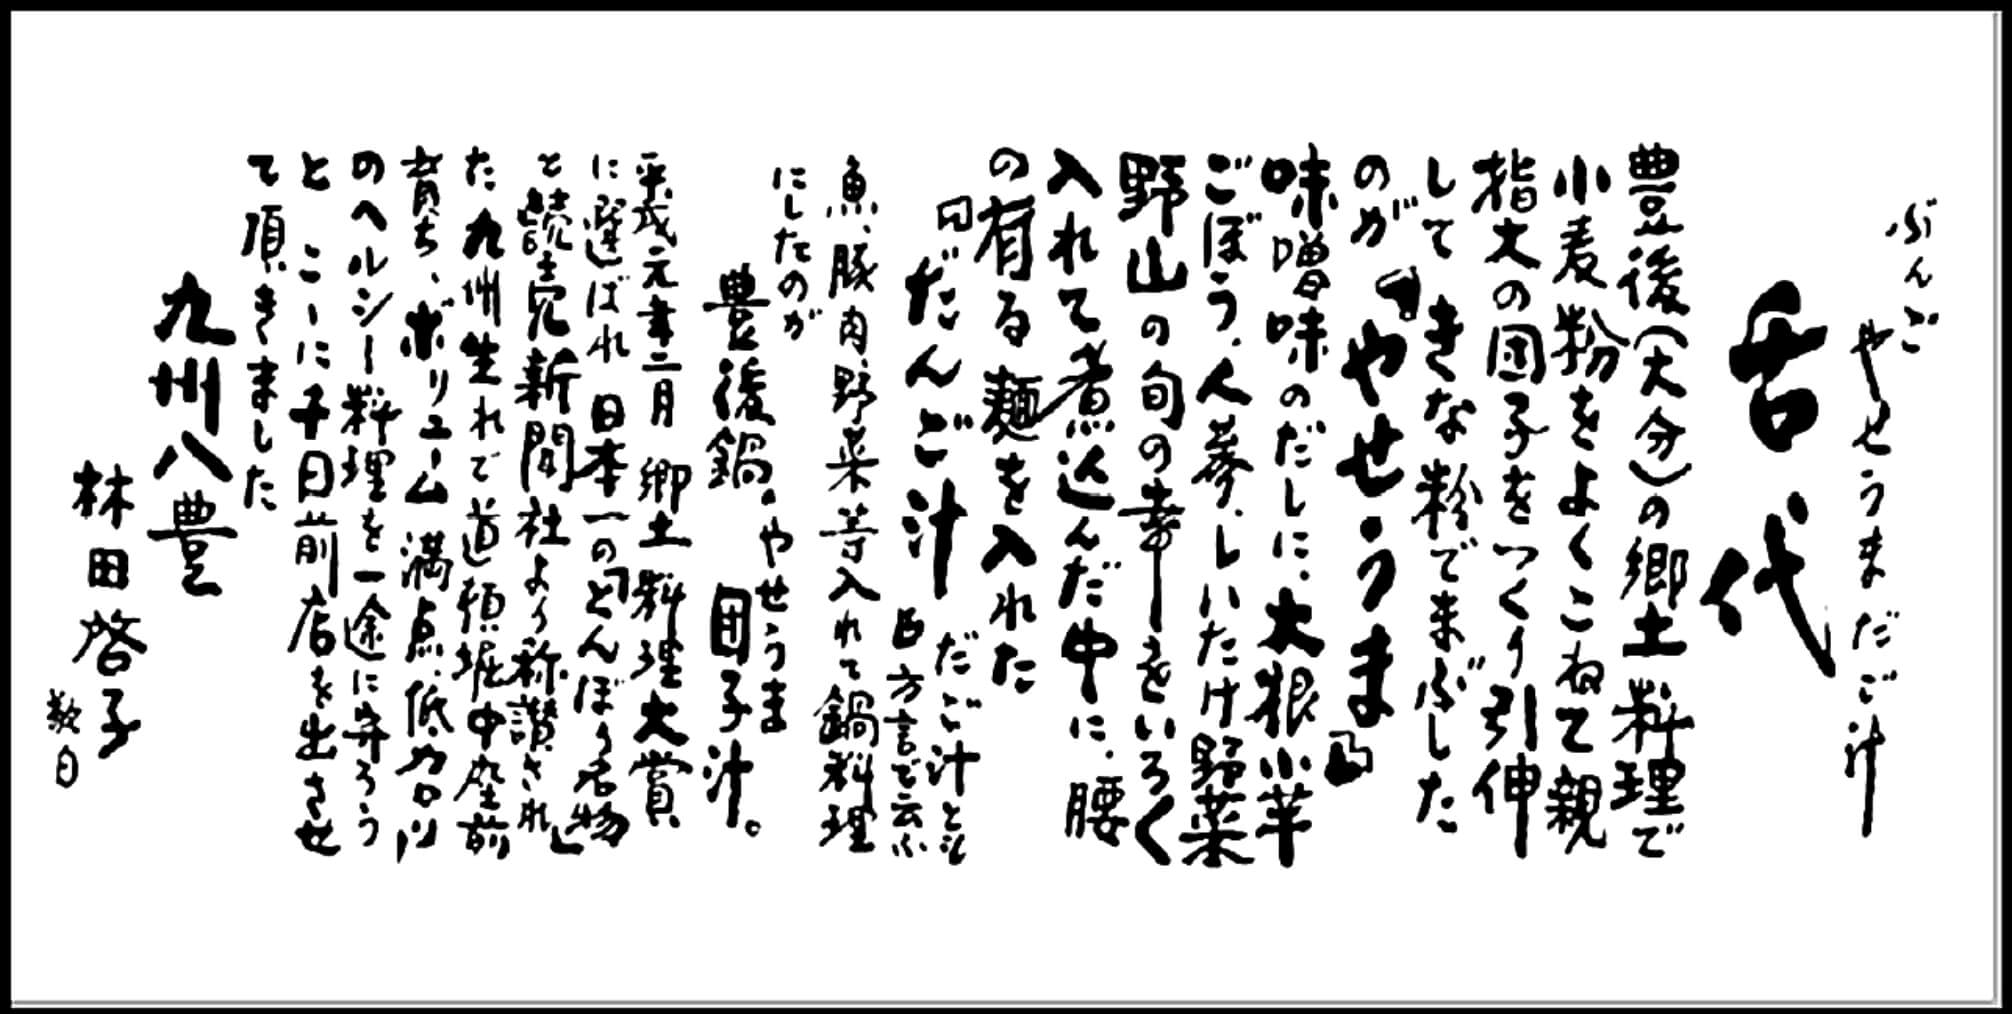 ぶんご
やせうまだご汁
舌代
豊後（大分）の郷土料理で
小麦粉をよくこねて親
指大の団子をつくり引伸
して きな粉でまぶした
のが『やせうま』
味噌味のだしに、大根小芋
ごぼう、人蔘、しいたけ野菜
野山の旬の幸をいろく
入れて煮込んだ中に、腰
の有る麺を入れた
『だんご汁』
だご汁とも
方言で云ふ
魚、豚肉野菜等入れて鍋料理
にしたのが
豊後鍋。やせうま 団子汁。
平成元年二月 郷土料理大賞
に選ばれ 日本一の「とんぼり名物」
と読売新聞社より称讃され
た九州生れで道頓堀中座前
育ち、ボリューム満点、低カロリー
のヘルシー料理を一途に弁ろう
と こゝに千日前店を出させ
て頂きました
九州八豊
林田啓子
敬白